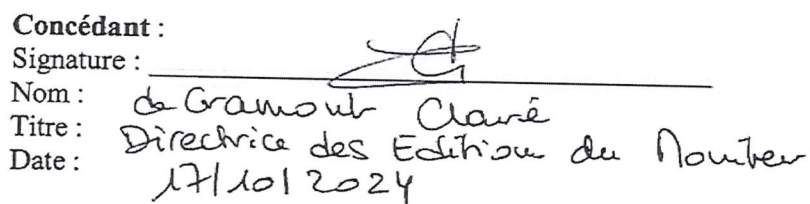 Concédant :
Signature :
Nom : de Gramont Claire
Titre : Directrice des Editions du Moniteur
Date : 17/10/2024